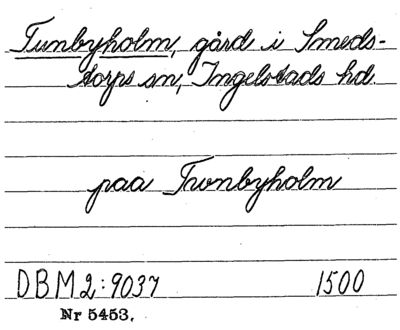 Tunbyholm, gård i Smeds-
torps sn, Ingelstads hd.
paa Twnbyholm
DBM 2:9037 1500
Nr 5453.